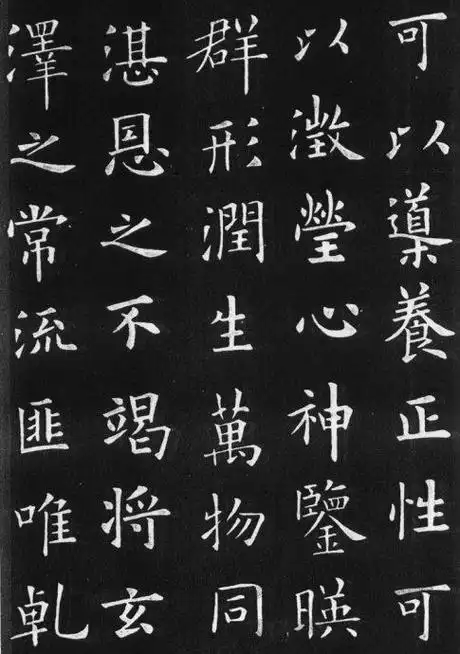 可以導養正性可
以澂瑩心神鑒暎
群形潤生萬物同
湛恩之不竭将玄
澤之常流匪唯乹